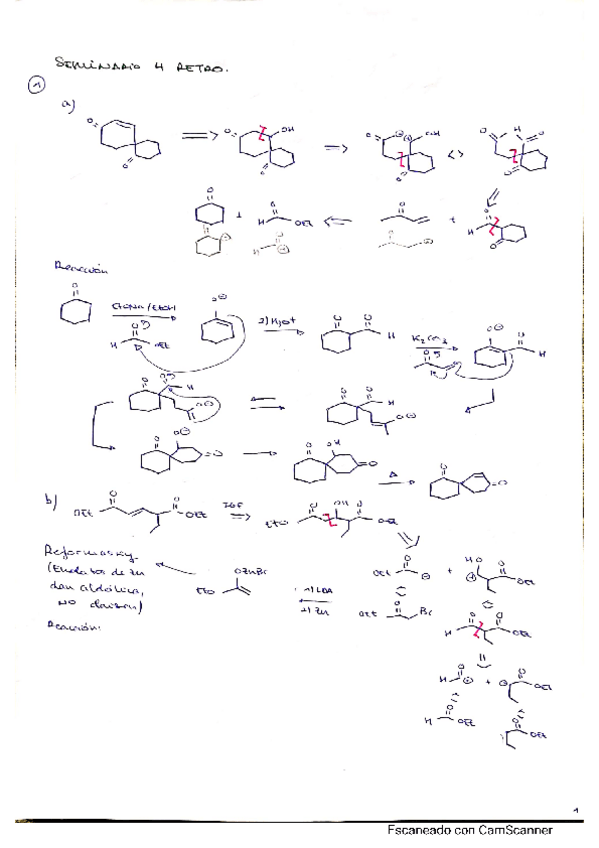 SEMINARIO 4 RETRO.
1
a)
O
OH
O
⊕
⊖
OH
O
H
O
O
O
+
H
O
OEt
O
+
H
O
O
Reacción
O
EtONa/EtOH
O⊖
2) H3O+
O
O
H
K2CO3
O⊖
O
H
H
O
OEt
O
O
H
O⊖
O
O
H
O⊖
O
O⊖
O
O
OH
O
Δ
O
O
b)
OEt
O
O
OEt
IGF
EtO
O
OH
O
OEt
Reformasky
(Enolatos de Zn
dan aldólica,
NO claisen)
Reacción:
OZnBr
EtO
1) LDA
2) Zn
OEt
O
⊖
+
HO
⊕
O
OEt
OEt
O
Br
H
O
O
OEt
H
O
⊕
+
⊖
O
OEt
H
O
OEt
O
OEt
1
Escaneado con CamScanner